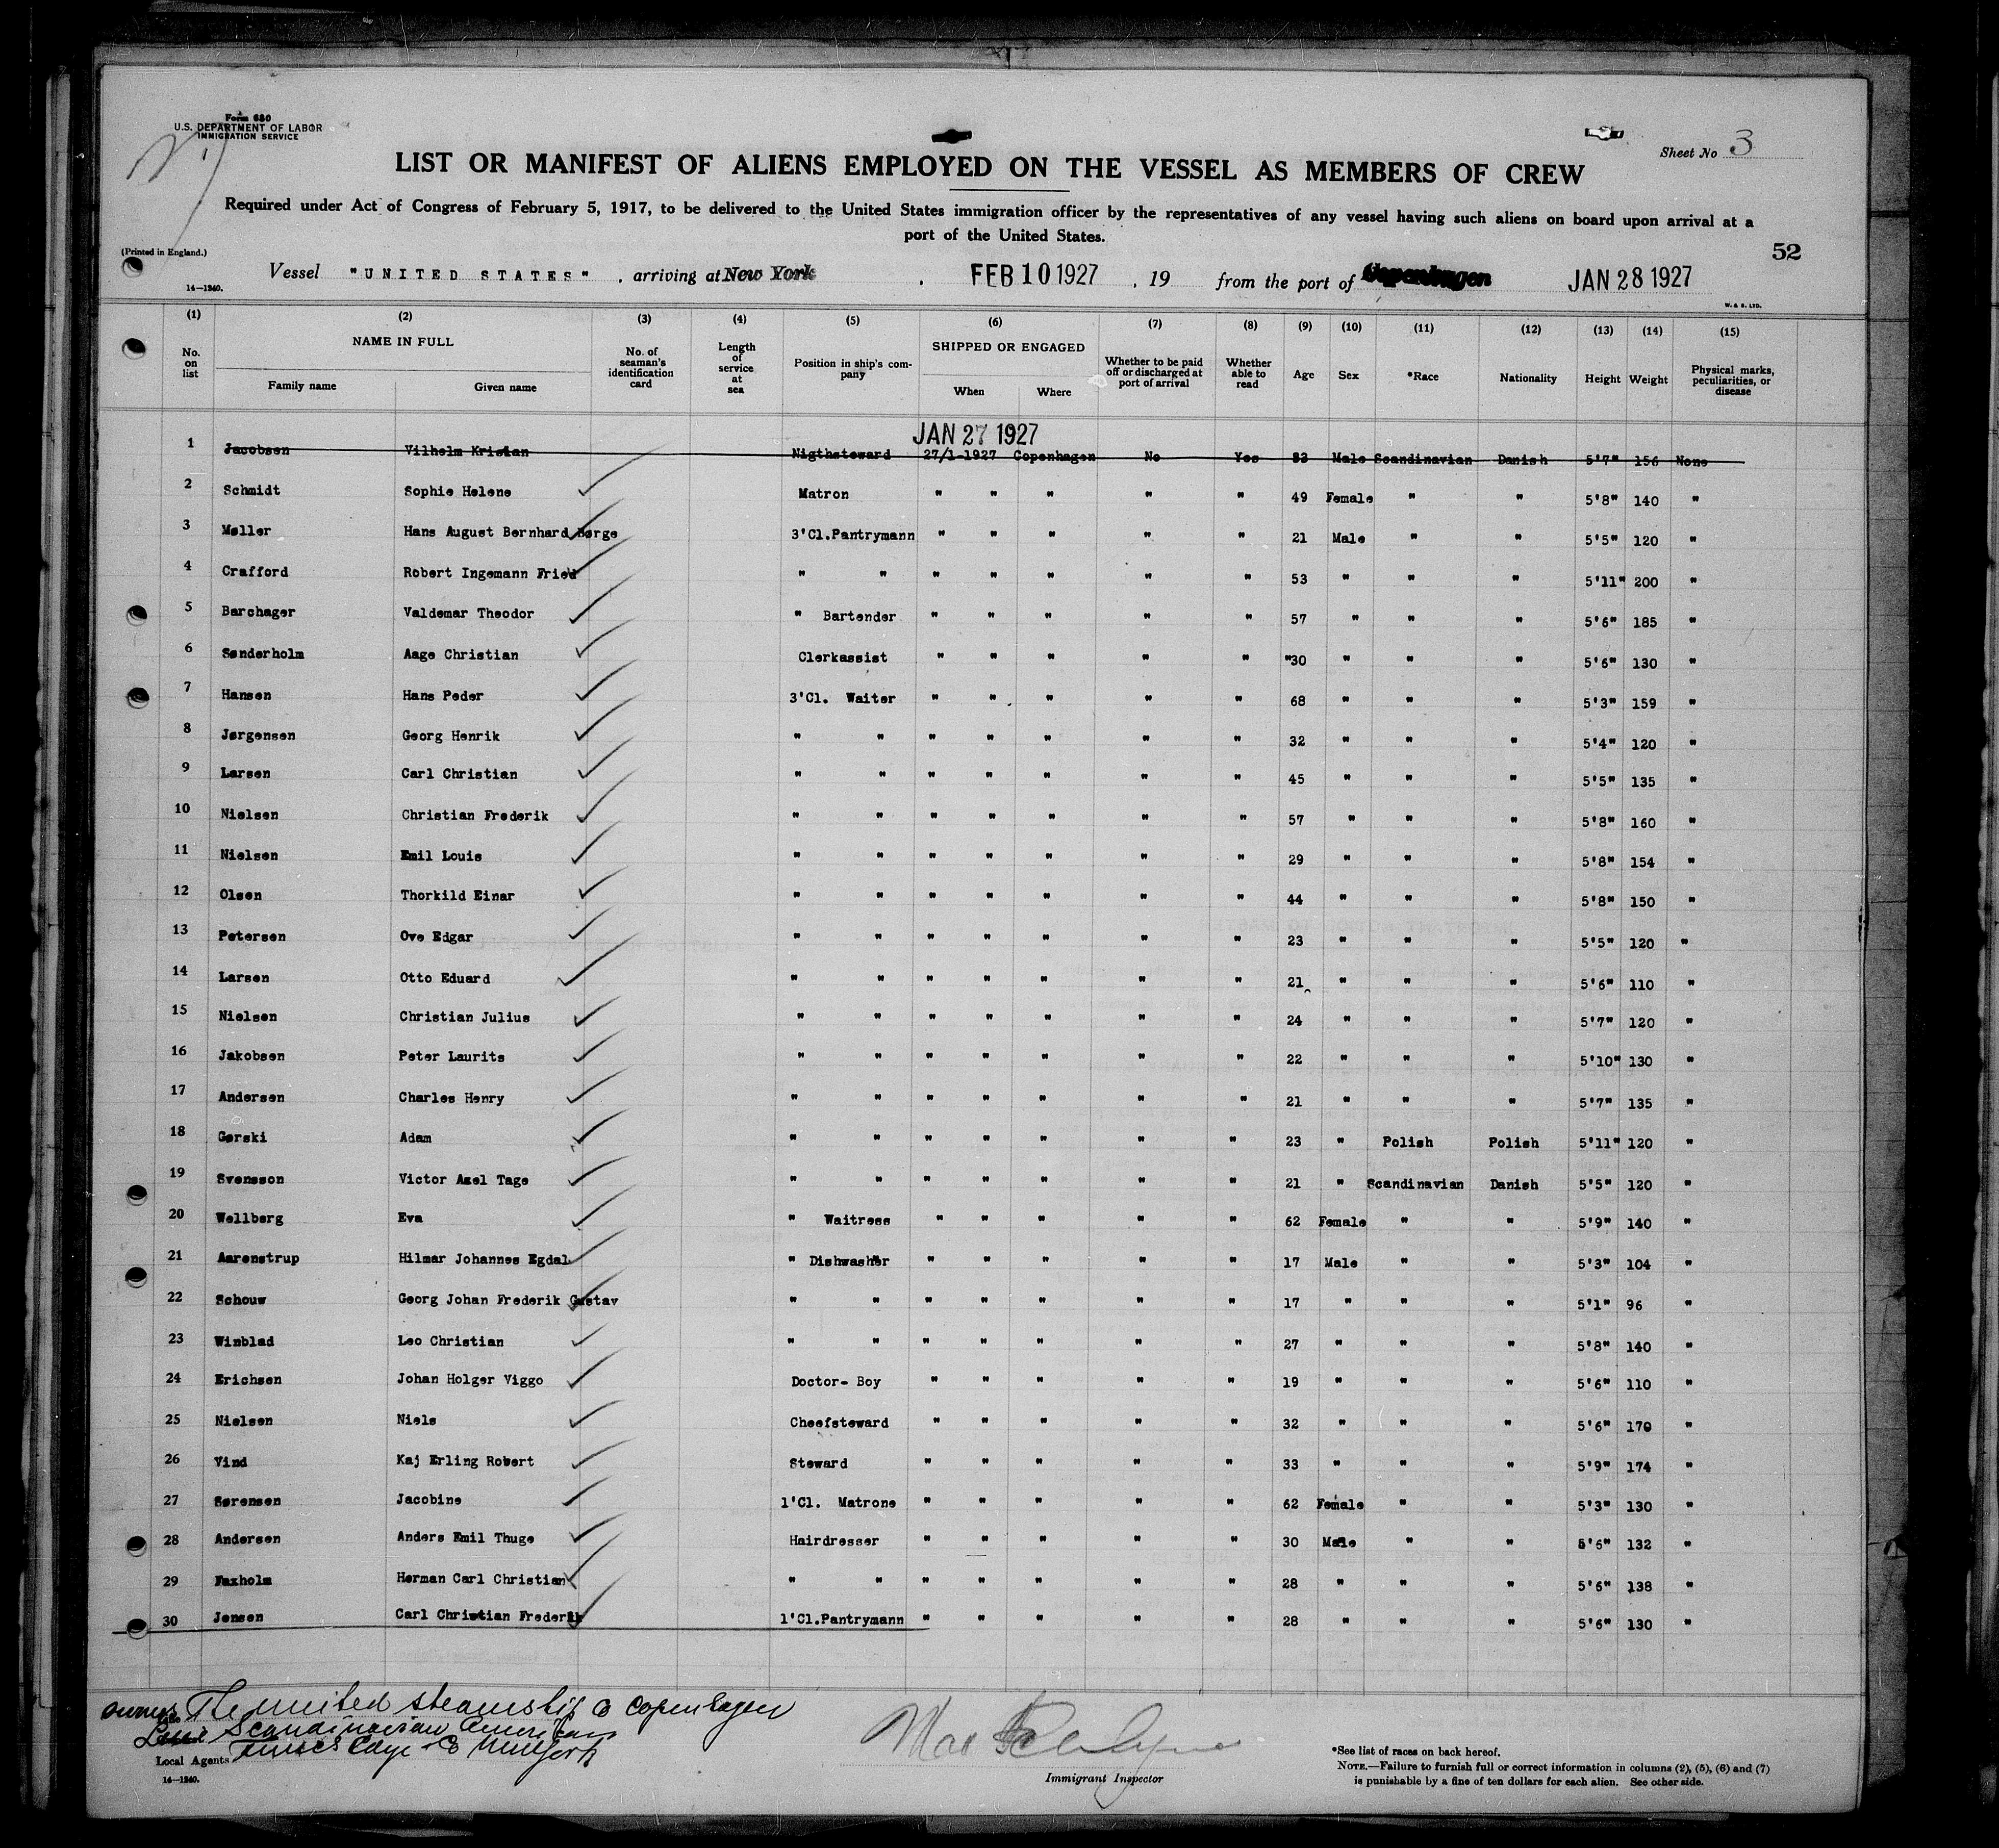 Form 680
U.S. DEPARTMENT OF LABOR
IMMIGRATION SERVICE
Sheet No 3
LIST OR MANIFEST OF ALIENS EMPLOYED ON THE VESSEL AS MEMBERS OF CREW
Required under Act of Congress of February 5, 1917, to be delivered to the United States immigration officer by the representatives of any vessel having such aliens on board upon arrival at a
port of the United States.
52
(Printed in England.)
Vessel "UNITED STATES", arriving at New York, FEB 10 1927, 19 from the port of Copenhagen JAN 28 1927
14—1240.
W. & S. LTD.
(1) (2) (3) (4) (5) (6) (7) (8) (9) (10) (11) (12) (13) (14) (15)
No. on list NAME IN FULL Family name Given name No. of seaman's identification card Length of service at sea Position in ship's company SHIPPED OR ENGAGED When Where Whether to be paid off or discharged at port of arrival Whether able to read Age Sex *Race Nationality Height Weight Physical marks, peculiarities, or disease
JAN 27 1927
1 Jacobsen Vilhelm Kristian Nigthsteward 27/1-1927 Copenhagen No Yes 33 Male Scandinavian Danish 5'7" 156 None
2 Schmidt Sophie Helene Matron " " " " " 49 Female " " 5'8" 140 "
3 Møller Hans August Bernhard Børge 3'Cl.Pantrymann " " " " " 21 Male " " 5'5" 120 "
4 Crafford Robert Ingemann Fried " " " " " " " 53 " " " 5'11" 200 "
5 Barchager Valdemar Theodor " Bartender " " " " " 57 " " " 5'6" 185 "
6 Sønderholm Aage Christian Clerkassist " " " " " "30 " " " 5'6" 130 "
7 Hansen Hans Peder 3'Cl. Waiter " " " " " 68 " " " 5'3" 159 "
8 Jørgensen Georg Henrik " " " " " " " 32 " " " 5'4" 120 "
9 Larsen Carl Christian " " " " " " " 45 " " " 5'5" 135 "
10 Nielsen Christian Frederik " " " " " " " 57 " " " 5'8" 160 "
11 Nielsen Emil Louis " " " " " " " 29 " " " 5'8" 154 "
12 Olsen Thorkild Einar " " " " " " " 44 " " " 5'8" 150 "
13 Petersen Ove Edgar " " " " " " " 23 " " " 5'5" 120 "
14 Larsen Otto Eduard " " " " " " " 21 " " " 5'6" 110 "
15 Nielsen Christian Julius " " " " " " " 24 " " " 5'7" 120 "
16 Jakobsen Peter Laurits " " " " " " " 22 " " " 5'10" 130 "
17 Andersen Charles Henry " " " " " " " 21 " " " 5'7" 135 "
18 Gørski Adam " " " " " " " 23 " Polish Polish 5'11" 120 "
19 Svensson Victor Axel Tage " " " " " " " 21 " Scandinavian Danish 5'5" 120 "
20 Wellberg Eva " Waitress " " " " " 62 Female " " 5'9" 140 "
21 Aarenstrup Hilmar Johannes Egdal " Dishwasher " " " " " 17 Male " " 5'3" 104 "
22 Schouw Georg Johan Frederik Gustav " " " " " " " 17 " " " 5'1" 96 "
23 Winblad Leo Christian " " " " " " " 27 " " " 5'8" 140 "
24 Erichsen Johan Holger Viggo Doctor- Boy " " " " " 19 " " " 5'6" 110 "
25 Nielsen Niels Cheefsteward " " " " " 32 " " " 5'6" 170 "
26 Vind Kaj Erling Robert Steward " " " " " 33 " " " 5'9" 174 "
27 Sørensen Jacobine 1'Cl. Matrone " " " " " 62 Female " " 5'3" 130 "
28 Andersen Anders Emil Thuge Hairdresser " " " " " 30 Male " " 5'6" 132 "
29 Faxholm Herman Carl Christian " " " " " " " 28 " " " 5'6" 138 "
30 Jensen Carl Christian Frederik 1'Cl.Pantrymann " " " " " 28 " " " 5'6" 130 "
owners The united steamship Co Copenhagen
Line Scandinavian American
Local Agents Funch Edye & Co New York
14—1240.
Immigrant Inspector
*See list of races on back hereof.
NOTE.—Failure to furnish full or correct information in columns (2), (5), (6) and (7)
is punishable by a fine of ten dollars for each alien. See other side.